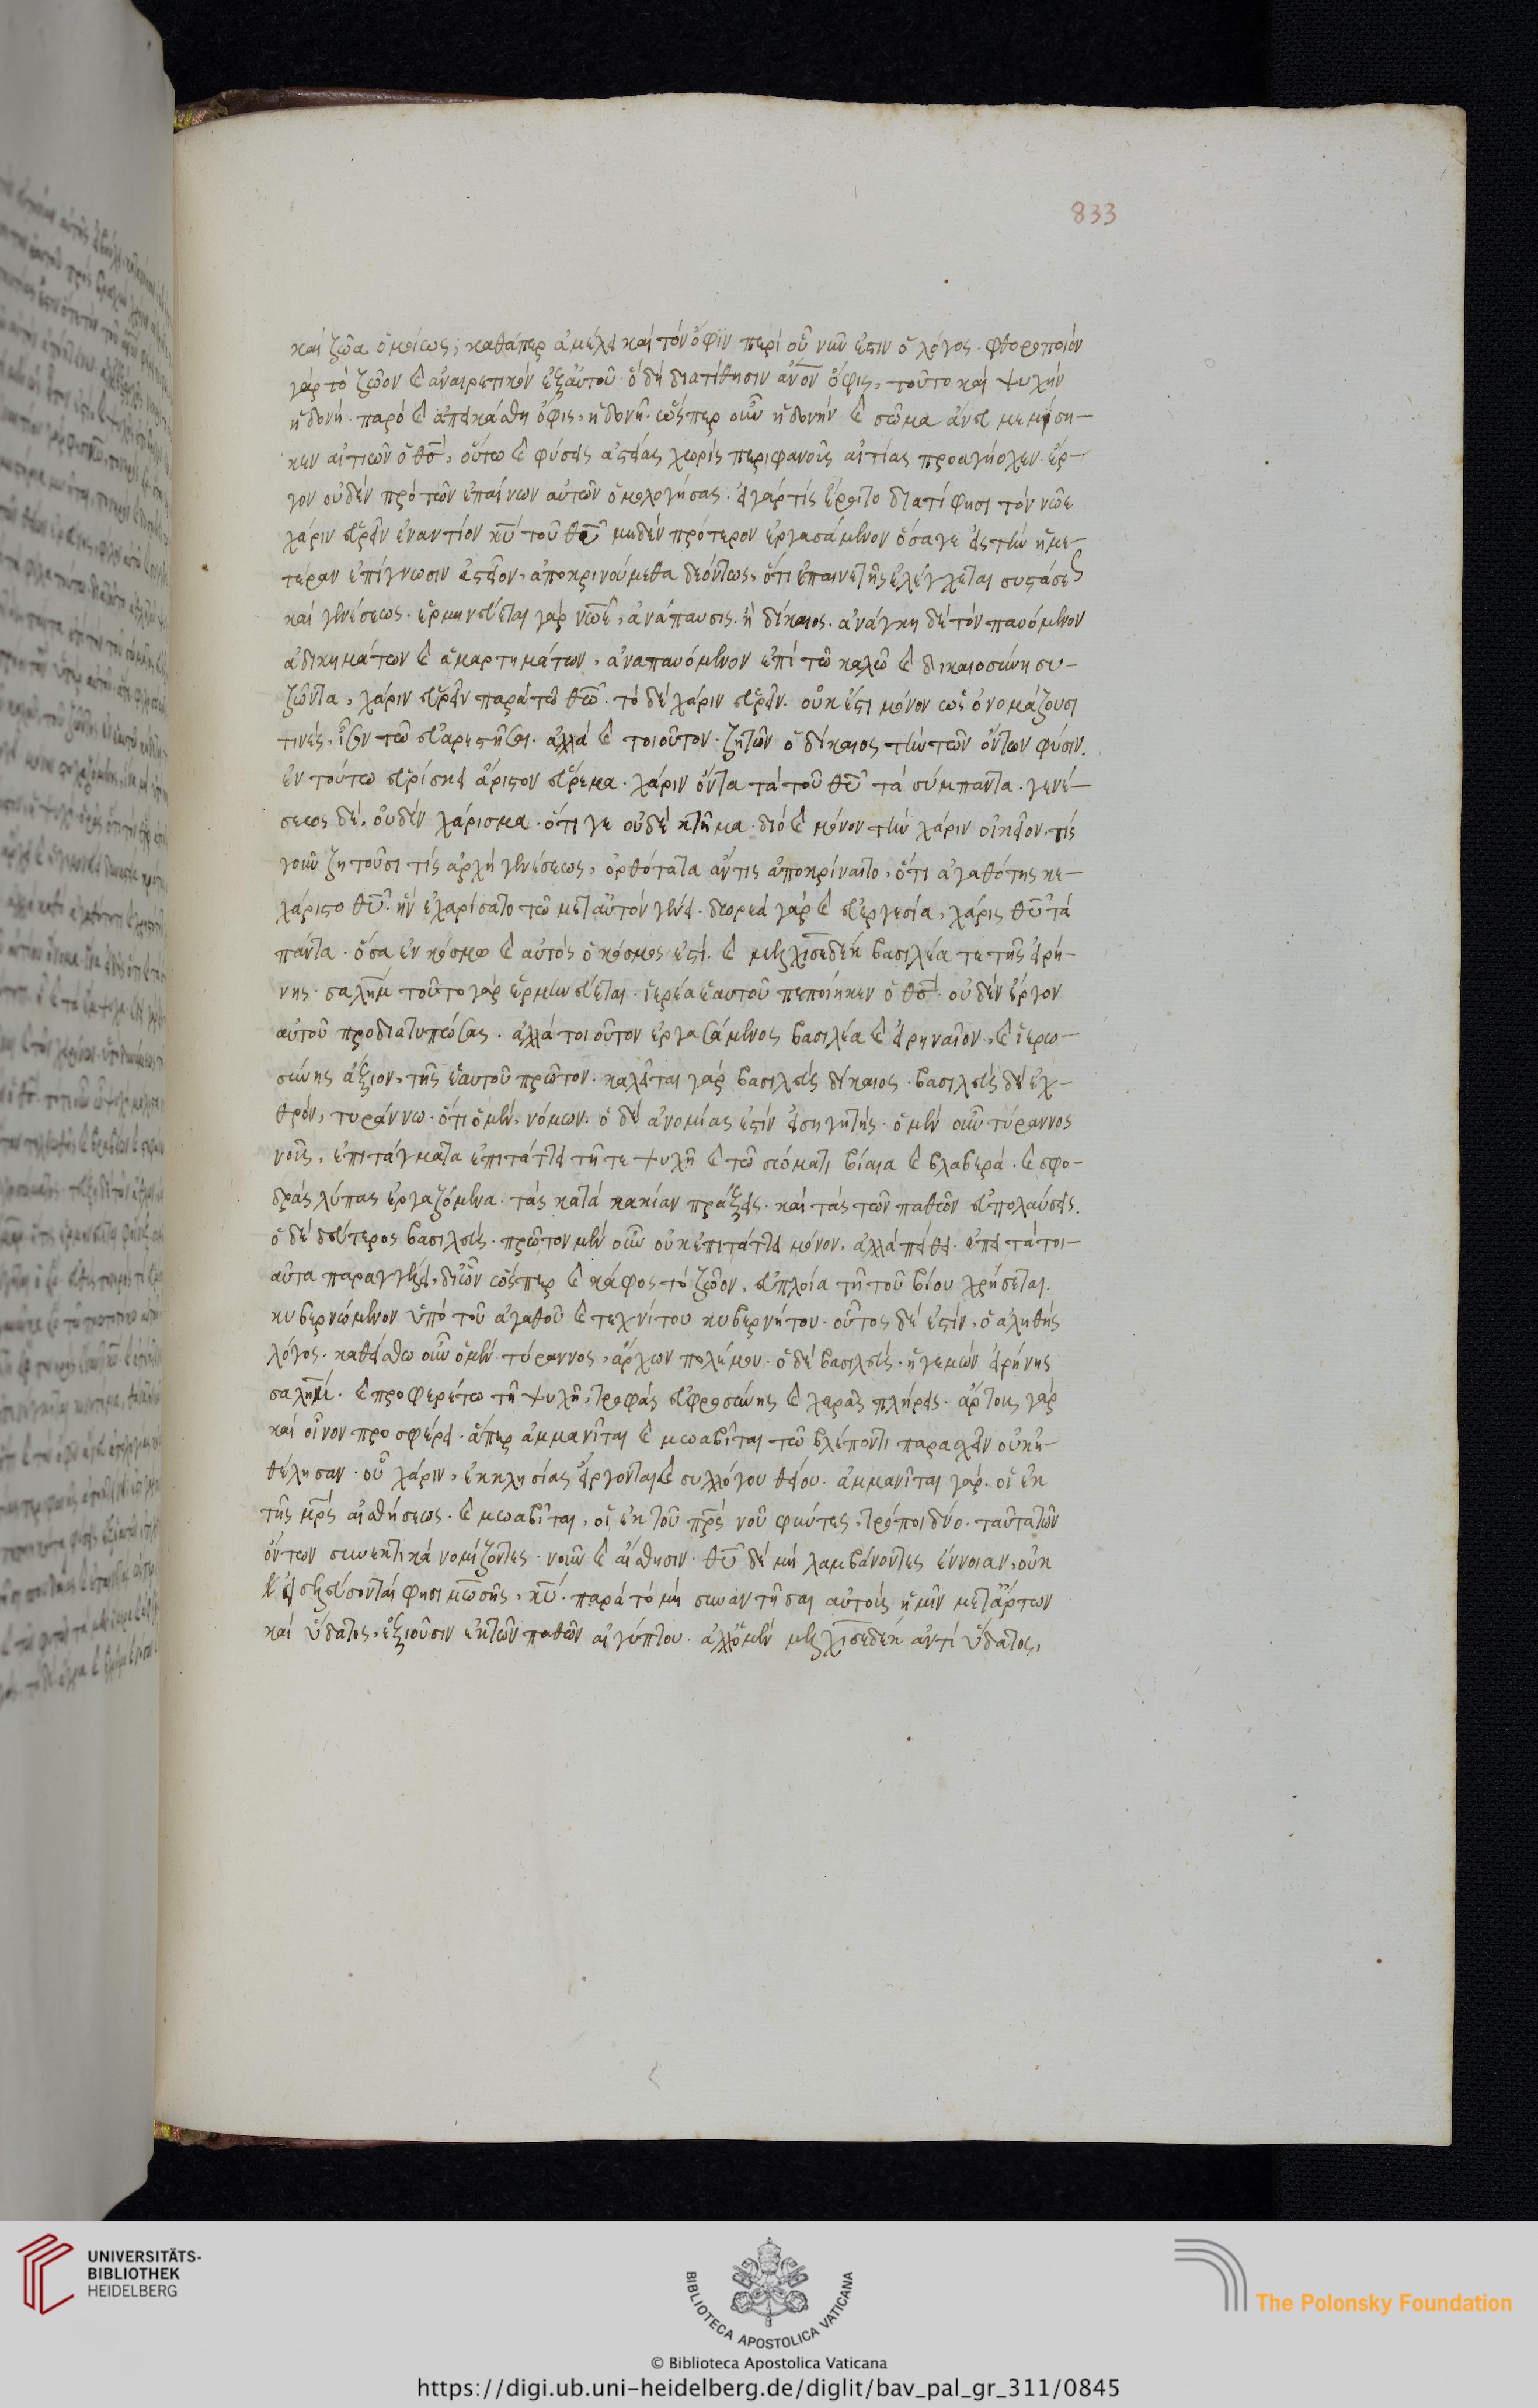 833
καὶ ζῶα ὁμοίως, καθάπερ ἀμέλει καὶ τὸν ὄφιν περὶ οὗ νῦν ἐστιν ὁ λόγος· φθοροποιὸν
γὰρ τὸ ζῶον καὶ ἀναιρετικὸν ἐξ αὐτοῦ· ὃ δὴ διατίθησιν ἄνον ὄφις, τοῦτο καὶ ψυχὴν
ἡδονή· παρὸ καὶ ἀπεικάσθη ὄφις, ἡδονῆ· ὥσπερ οὖν ἡδονὴν καὶ σῶμα ἄνευ μεμίση-
κεν αἰτιῶν ὁ θς, οὕτω καὶ φύσεις ἀστείας χωρὶς περιφανοῦς αἰτίας προαγήοχεν· ἔρ-
γον οὐδὲν πρὸ τῶν ἐπαίνων αὐτῶν ὁμολογήσας· εἰ γάρ τις ἔροιτο διατί φησι τὸν νῶε
χάριν εὑρεῖν ἐναντίον κυ τοῦ θυ μηδὲν πρότερον ἐργασάμενον ὅσα γε εἰς τὴν ἡμε-
τέραν ἐπίγνωσιν ἀστεῖον, ἀποκρινούμεθα δεόντως, ὅτι ἐπαινετῆς ἐλέγχεται συστάσε
καὶ γενέσεως· ἑρμηνεύεται γὰρ νῶε, ἀνάπαυσις· ἢ δίκαιος· ἀνάγκη δὲ τὸν παυόμενον
ἀδικημάτων καὶ ἁμαρτημάτων, ἀναπαυόμενον ἐπὶ τῶ καλῶ καὶ δικαιοσύνη συ-
ζῶντα, χάριν εὑρεῖν παρὰ τῶ θω· τὸ δὲ χάριν εὑρεῖν· οὐκ ἔστι μόνον ὡς ὀνομάζουσι
τινές, ἴσον τῶ εὐαρεστῆσαι· ἀλλὰ καὶ τοιοῦτον· ζητῶν ὁ δίκαιος τὴν τῶν ὄντων φύσιν.
ἐν τούτω εὑρίσκει ἄριστον εὕρεμα· χάριν ὄντα τὰ τοῦ θυ τὰ σύμπαντα· γενέ-
σεως δέ, οὐδὲν χάρισμα· ὅτι γε οὐδὲ κτῆμα· διὸ καὶ μόνον τὴν χάριν οἰκεῖον· τίς
γοῦν ζητοῦσι τίς ἀρχὴ γενέσεως, ὀρθότατα ἄν τις ἀποκρίναιτο, ὅτι ἀγαθότης κε-
χάριστο θυ· ἣν ἐχαρίσατο τῶ μετ' αὐτὸν γένει· δωρεὰ γὰρ καὶ εὐεργεσία, χάρις θυ τὰ
πάντα· ὅσα ἐν κόσμω καὶ αὐτὸς ὁ κόσμος ἐστί· καὶ μελχισεδὲκ βασιλέα τε τῆς εἰρή-
νης· σαλὴμ τοῦτο γὰρ ἑρμηνεύεται· ἱερέα ἑαυτοῦ πεποίηκεν ὁ θς· οὐδὲν ἔργον
αὐτοῦ προδιατυπώσας· ἀλλὰ τοιοῦτον ἐργασάμενος βασιλέα καὶ εἰρηναῖον, καὶ ἱερω-
σύνης ἄξιον, τῆς ἑαυτοῦ πρῶτον· καλεῖται γὰρ βασιλεὺς δίκαιος· βασιλεὺς δὲ ἐχ-
θρὸν, τυράννω· ὅτι ὁ μὲν, νόμων· ὁ δὲ ἀνομίας ἐστὶν εἰσηγητής· ὁ μὲν οὖν τύραννος
νοῦς, ἐπιτάγματα ἐπιτάττει τῆ τε ψυχῆ καὶ τῶ σώματι βίαια καὶ βλαβερά· καὶ σφο-
δρὰς λύπας ἐργαζόμενα· τὰς κατὰ κακίαν πράξεις· καὶ τὰς τῶν παθῶν ἀπολαύσεις.
ὁ δὲ δεύτερος βασιλεὺς· πρῶτον μὲν οὖν οὐκ ἐπιτάττει μόνον, ἀλλὰ πείθει· ἐπεὶ τὰ τοι-
αῦτα παραγγέλλει, δι' ὧν ὥσπερ καὶ κάφος τὸ ζῶον, εὐπλοία τῆ τοῦ βίου χρήσεται
κυβερνώμενον ὑπὸ τοῦ ἀγαθοῦ καὶ τεχνίτου κυβερνήτου· οὗτος δέ ἐστίν, ὁ ἀληθὴς
λόγος· καλείσθω οὖν ὁ μὲν τύραννος, ἄρχων πολέμου· ὁ δὲ βασιλεὺς· ἡγεμὼν εἰρήνης
σαλήμ· καὶ προφερέτω τῆ ψυχῆ, τροφὰς εὐφροσύνης καὶ χαρᾶς πλήρεις· ἄρτους γὰρ
καὶ οἶνον προσφέρει· ἅπερ ἀμμανῖται καὶ μωαβῖται τῶ βλέποντι παρασχεῖν οὐκ ἠ-
θέλησαν· οὗ χάριν, ἐκκλησίας εἴργονται καὶ συλλόγου θείου· ἀμμανῖται γάρ· οἱ ἐκ
τῆς μρς αἰσθήσεως· καὶ μωαβῖται, οἱ ἐκ τοῦ πρς νοῦ φύντες, τρόποι δύο· ταῦτα τῶν
ὄντων συνεκτικὰ νομίζοντες· νοῦν καὶ αἴσθησιν· θυ δὲ μὴ λαμβάνοντες ἔννοιαν, οὐκ
εἰσελεύσονται φησι μωσῆς, κυ· παρὰ τὸ μὴ συναντῆσαι αὐτοὺς ἡμῖν μετ' ἄρτων
καὶ ὕδατος, ἐξιοῦσιν ἐκ τῶν παθῶν αἰγύπτου· ἀλλ' ὁ μὲν μελχισεδὲκ ἀντὶ ὕδατος,
UNIVERSITÄTS-
BIBLIOTHEK
HEIDELBERG
BIBLIOTECA APOSTOLICA VATICANA
© Biblioteca Apostolica Vaticana
The Polonsky Foundation
https://digi.ub.uni-heidelberg.de/diglit/bav_pal_gr_311/0845